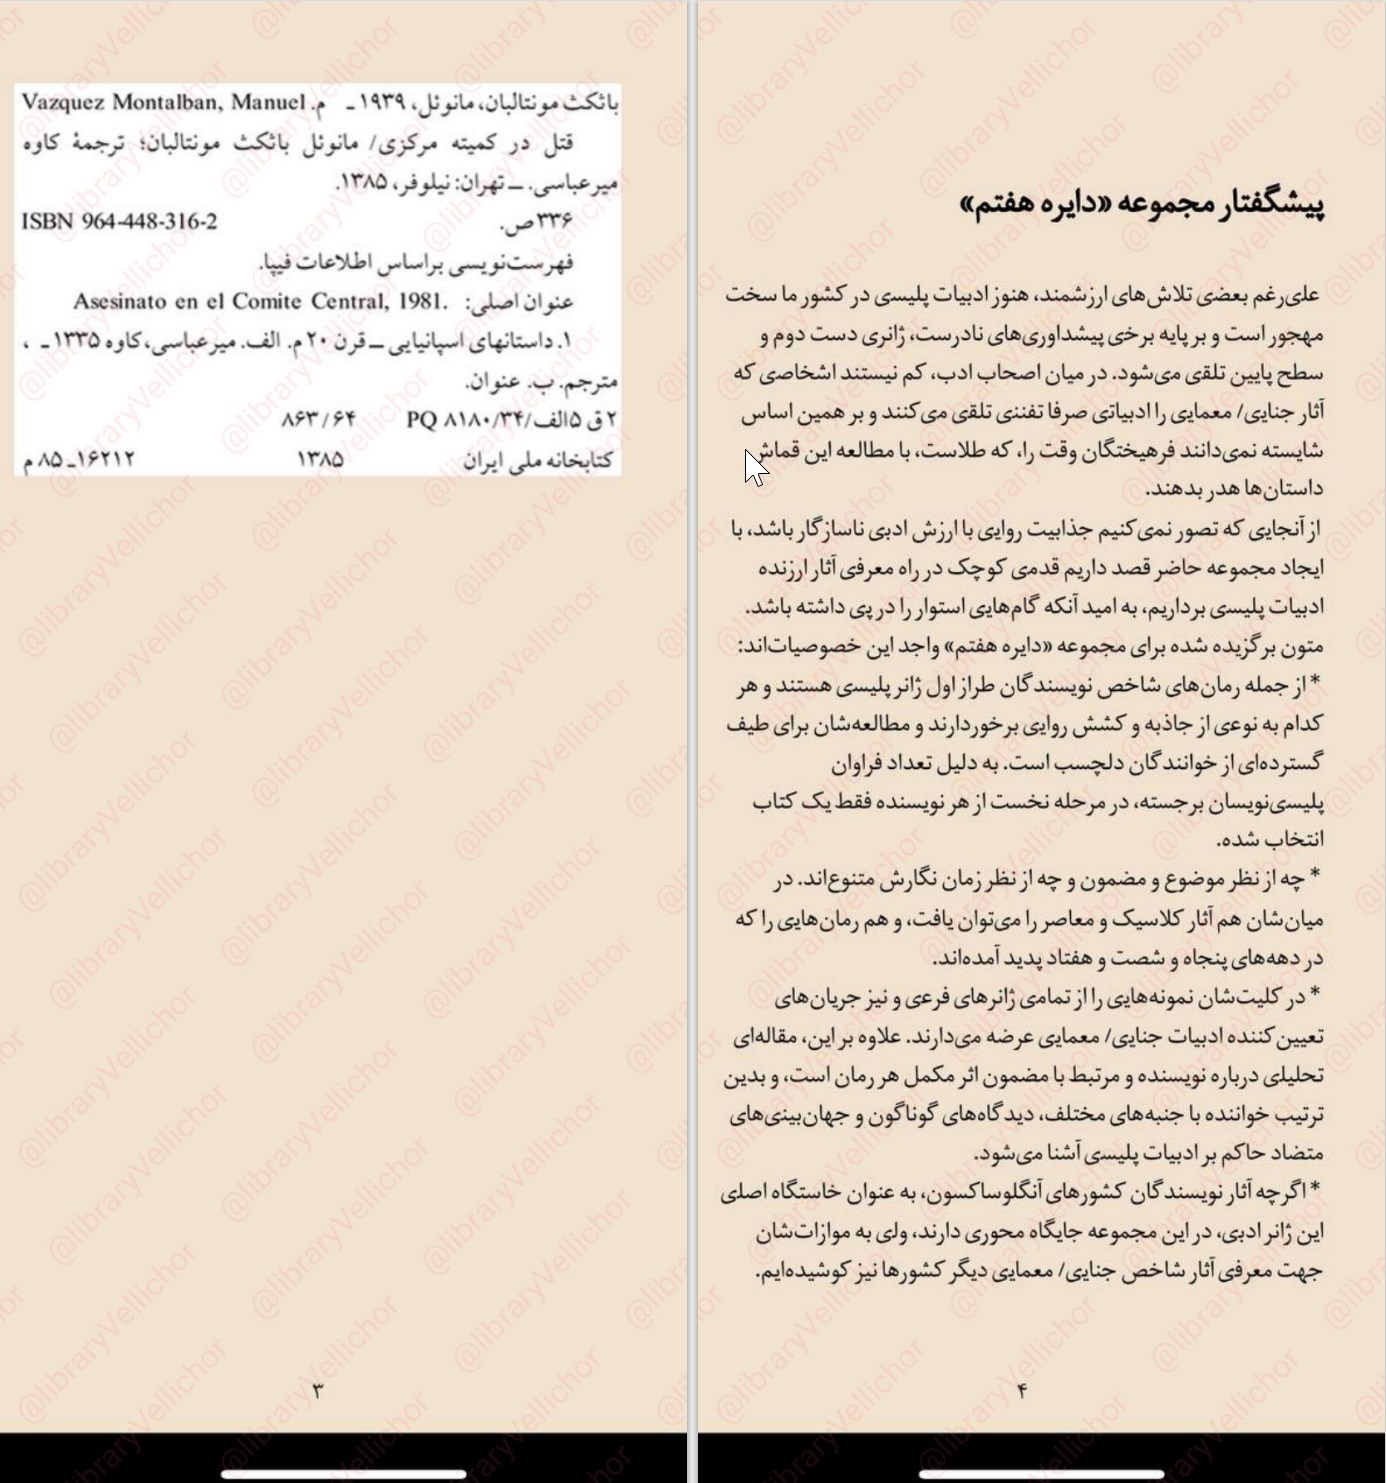 باثکث مونتالبان، مانوئل، ۱۹۳۹ ـ م. Vazquez Montalban, Manuel
قتل در کمیته مرکزی/ مانوئل باثکث مونتالبان؛ ترجمهٔ کاوه
میرعباسی. ــ تهران: نیلوفر، ۱۳۸۵.
۳۳۶ ص. ISBN 964-448-316-2
فهرست‌نویسی براساس اطلاعات فیپا.
عنوان اصلی: Asesinato en el Comite Central, 1981.
۱. داستانهای اسپانیایی ــ قرن ۲۰ م. الف. میرعباسی، کاوه ۱۳۳۵ ـ ،
مترجم. ب. عنوان.
۲ ق ۵الف/۳۴/ PQ ۸۱۸۰ ۸۶۳/۶۴
کتابخانه ملی ایران ۱۳۸۵ ۱۶۲۱۲ـ ۸۵ م
۳
پیشگفتار مجموعه «دایره هفتم»
علی‌رغم بعضی تلاش‌های ارزشمند، هنوز ادبیات پلیسی در کشور ما سخت
مهجور است و بر پایه برخی پیشداوری‌های نادرست، ژانری دست دوم و
سطح پایین تلقی می‌شود. در میان اصحاب ادب، کم نیستند اشخاصی که
آثار جنایی/ معمایی را ادبیاتی صرفا تفننی تلقی می‌کنند و بر همین اساس
شایسته نمی‌دانند فرهیختگان وقت را، که طلاست، با مطالعه این قماش
داستان‌ها هدر بدهند.
از آنجایی که تصور نمی‌کنیم جذابیت روایی با ارزش ادبی ناسازگار باشد، با
ایجاد مجموعه حاضر قصد داریم قدمی کوچک در راه معرفی آثار ارزنده
ادبیات پلیسی برداریم، به امید آنکه گام‌هایی استوار را در پی داشته باشد.
متون برگزیده شده برای مجموعه «دایره هفتم» واجد این خصوصیات‌اند:
* از جمله رمان‌های شاخص نویسندگان طراز اول ژانر پلیسی هستند و هر
کدام به نوعی از جاذبه و کشش روایی برخوردارند و مطالعه‌شان برای طیف
گسترده‌ای از خوانندگان دلچسب است. به دلیل تعداد فراوان
پلیسی‌نویسان برجسته، در مرحله نخست از هر نویسنده فقط یک کتاب
انتخاب شده.
* چه از نظر موضوع و مضمون و چه از نظر زمان نگارش متنوع‌اند. در
میان‌شان هم آثار کلاسیک و معاصر را می‌توان یافت، و هم رمان‌هایی را که
در دهه‌های پنجاه و شصت و هفتاد پدید آمده‌اند.
* در کلیت‌شان نمونه‌هایی را از تمامی ژانرهای فرعی و نیز جریان‌های
تعیین‌کننده ادبیات جنایی/ معمایی عرضه می‌دارند. علاوه بر این، مقاله‌ای
تحلیلی درباره نویسنده و مرتبط با مضمون اثر مکمل هر رمان است، و بدین
ترتیب خواننده با جنبه‌های مختلف، دیدگاه‌های گوناگون و جهان‌بینی‌های
متضاد حاکم بر ادبیات پلیسی آشنا می‌شود.
* اگرچه آثار نویسندگان کشورهای آنگلوساکسون، به عنوان خاستگاه اصلی
این ژانر ادبی، در این مجموعه جایگاه محوری دارند، ولی به موازات‌شان
جهت معرفی آثار شاخص جنایی/ معمایی دیگر کشورها نیز کوشیده‌ایم.
۴
@libraryVellichor